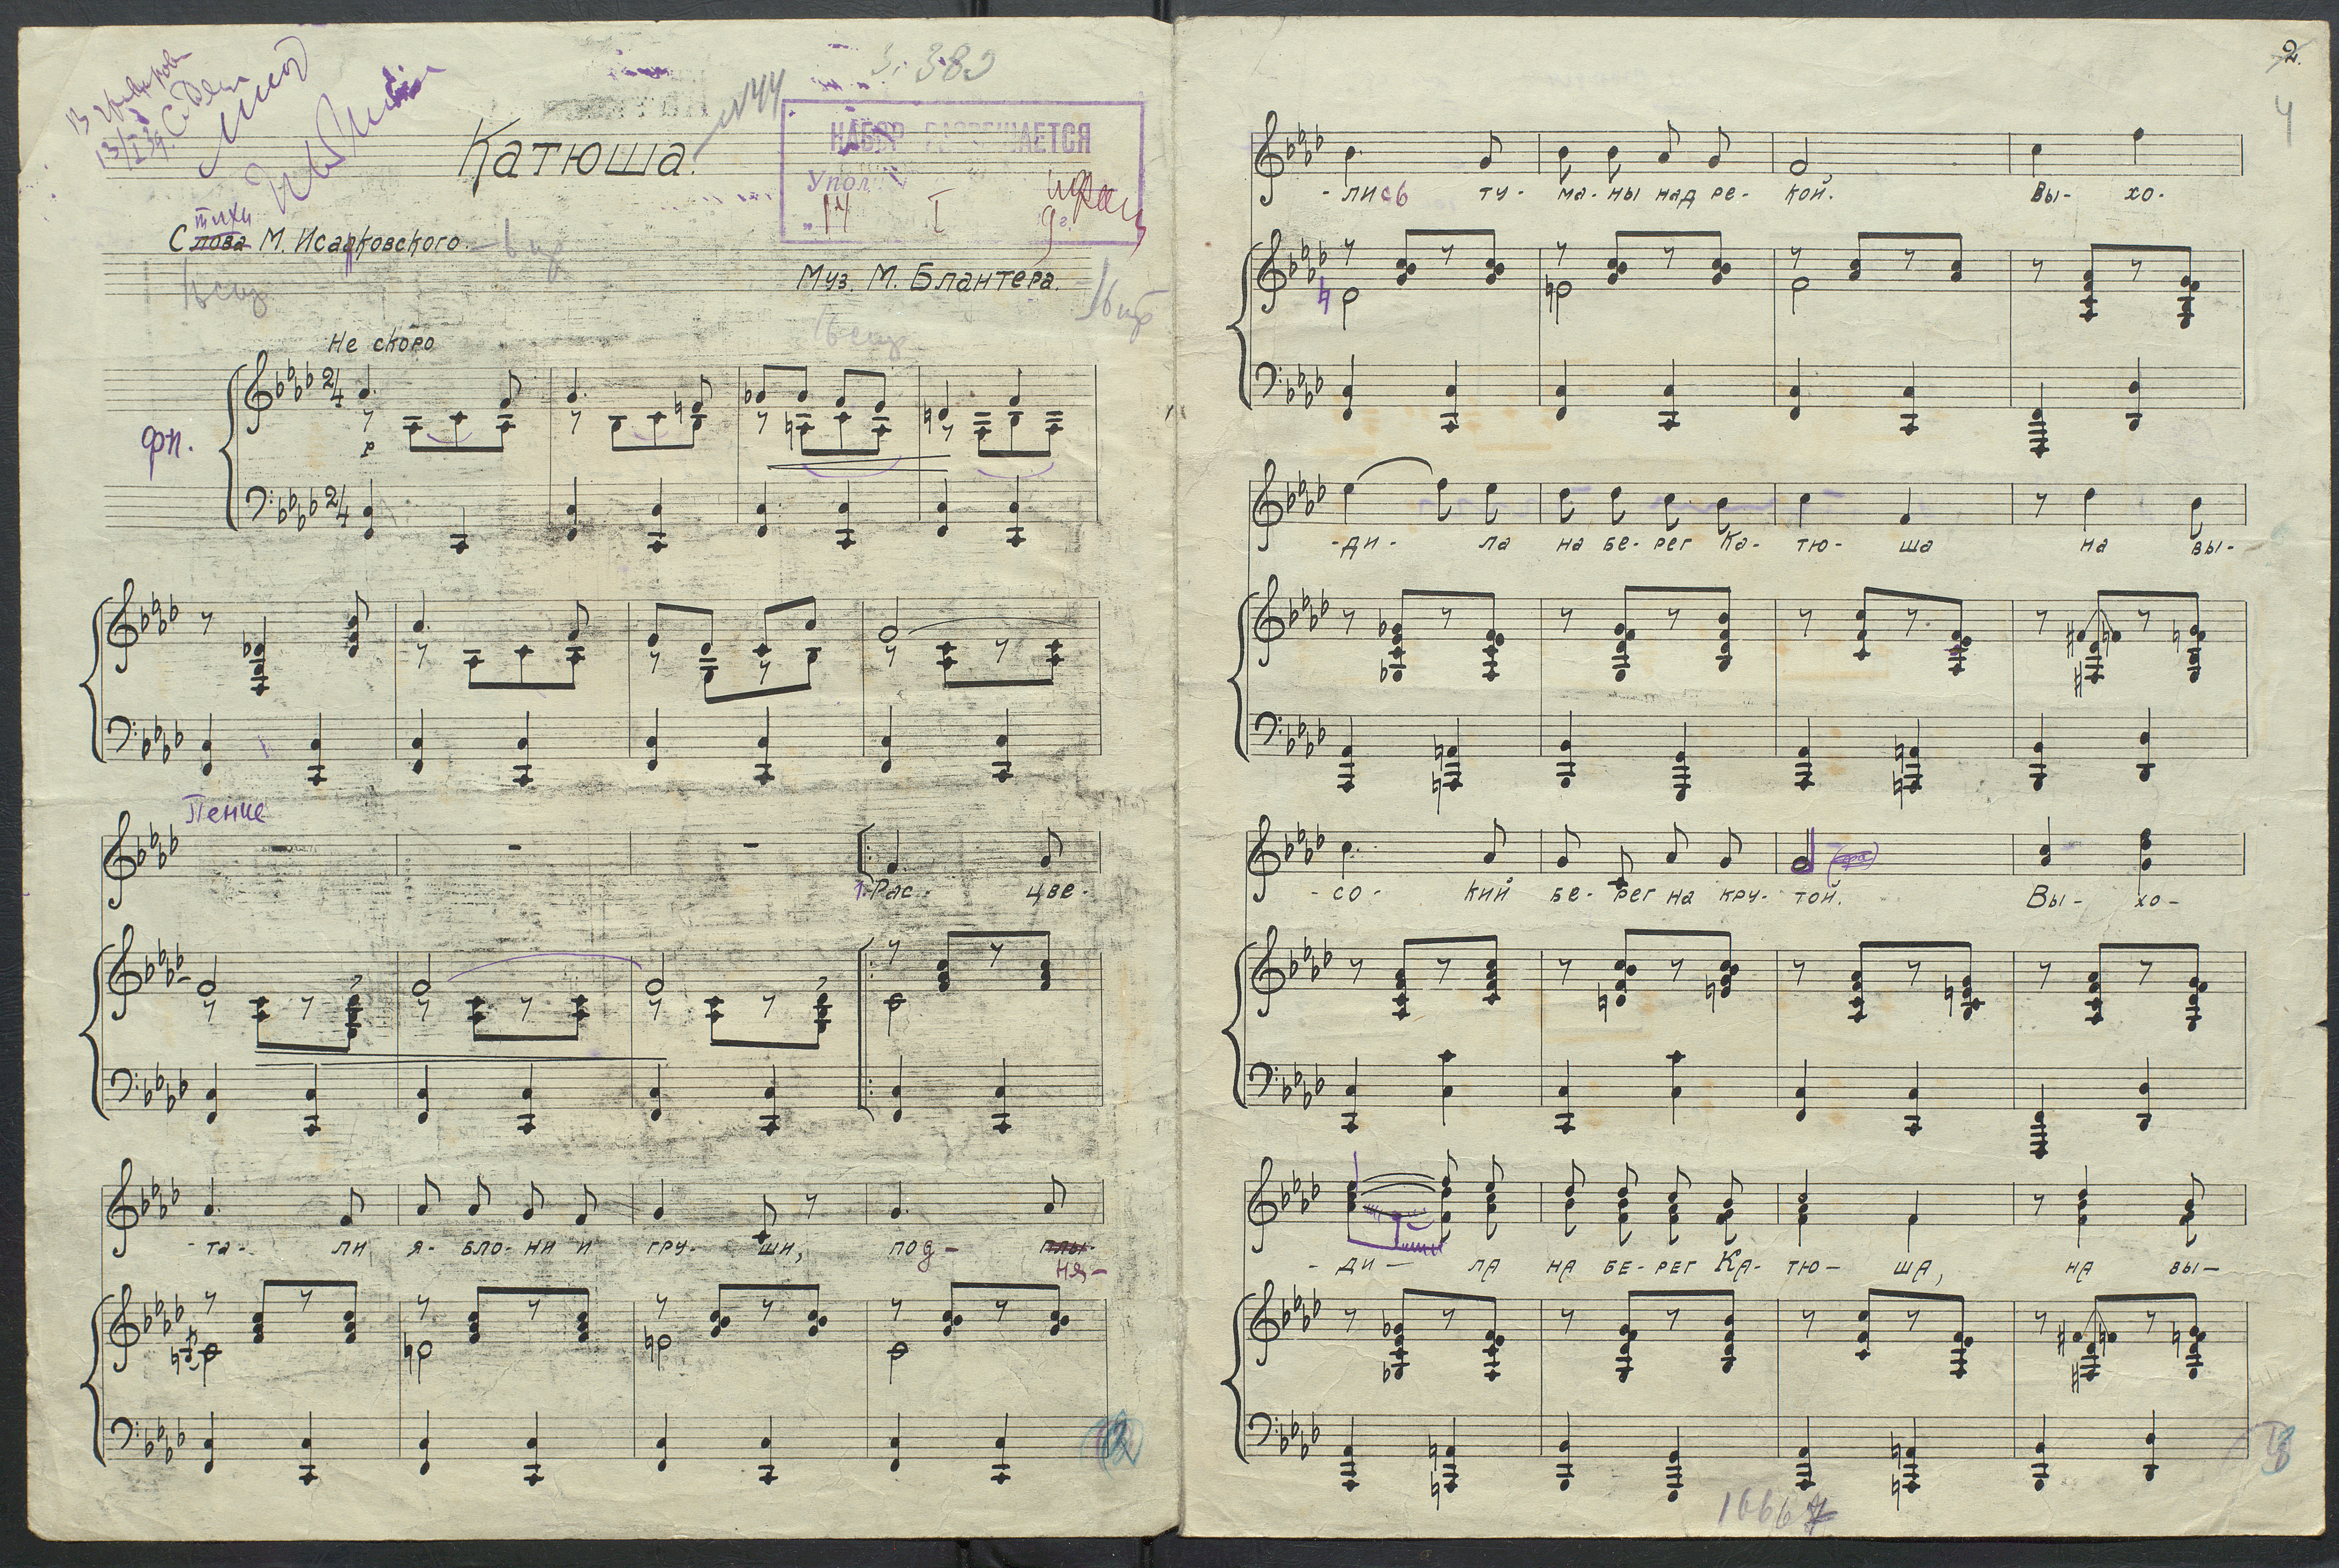 3. 380
№44
Катюша.
НАБОР РАЗРЕШАЕТСЯ
Упол
"14 I 9г.
стихи
Слова М. Исаковского
Муз. М. Блантера.
Не скоро
2/4
фп.
p
2/4
Пение
1. Рас- цве-
-та- ли я- бло- ни и гру- ши, под- плы-
ня-
2.
4
-лись ту- ма- ны над ре- кой. Вы- хо-
-ди- ла на бе- рег Ка- тю- ша на вы-
-со- кий бе- рег на кру- той. Вы- хо-
-ди- ла на бе- рег Ка- тю- ша, на вы-
1666